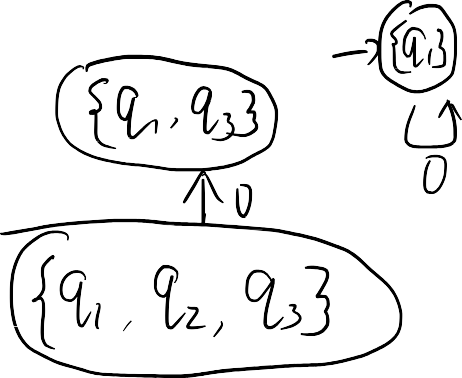 {q1}
{q1, q3}
0
0
{q1, q2, q3}